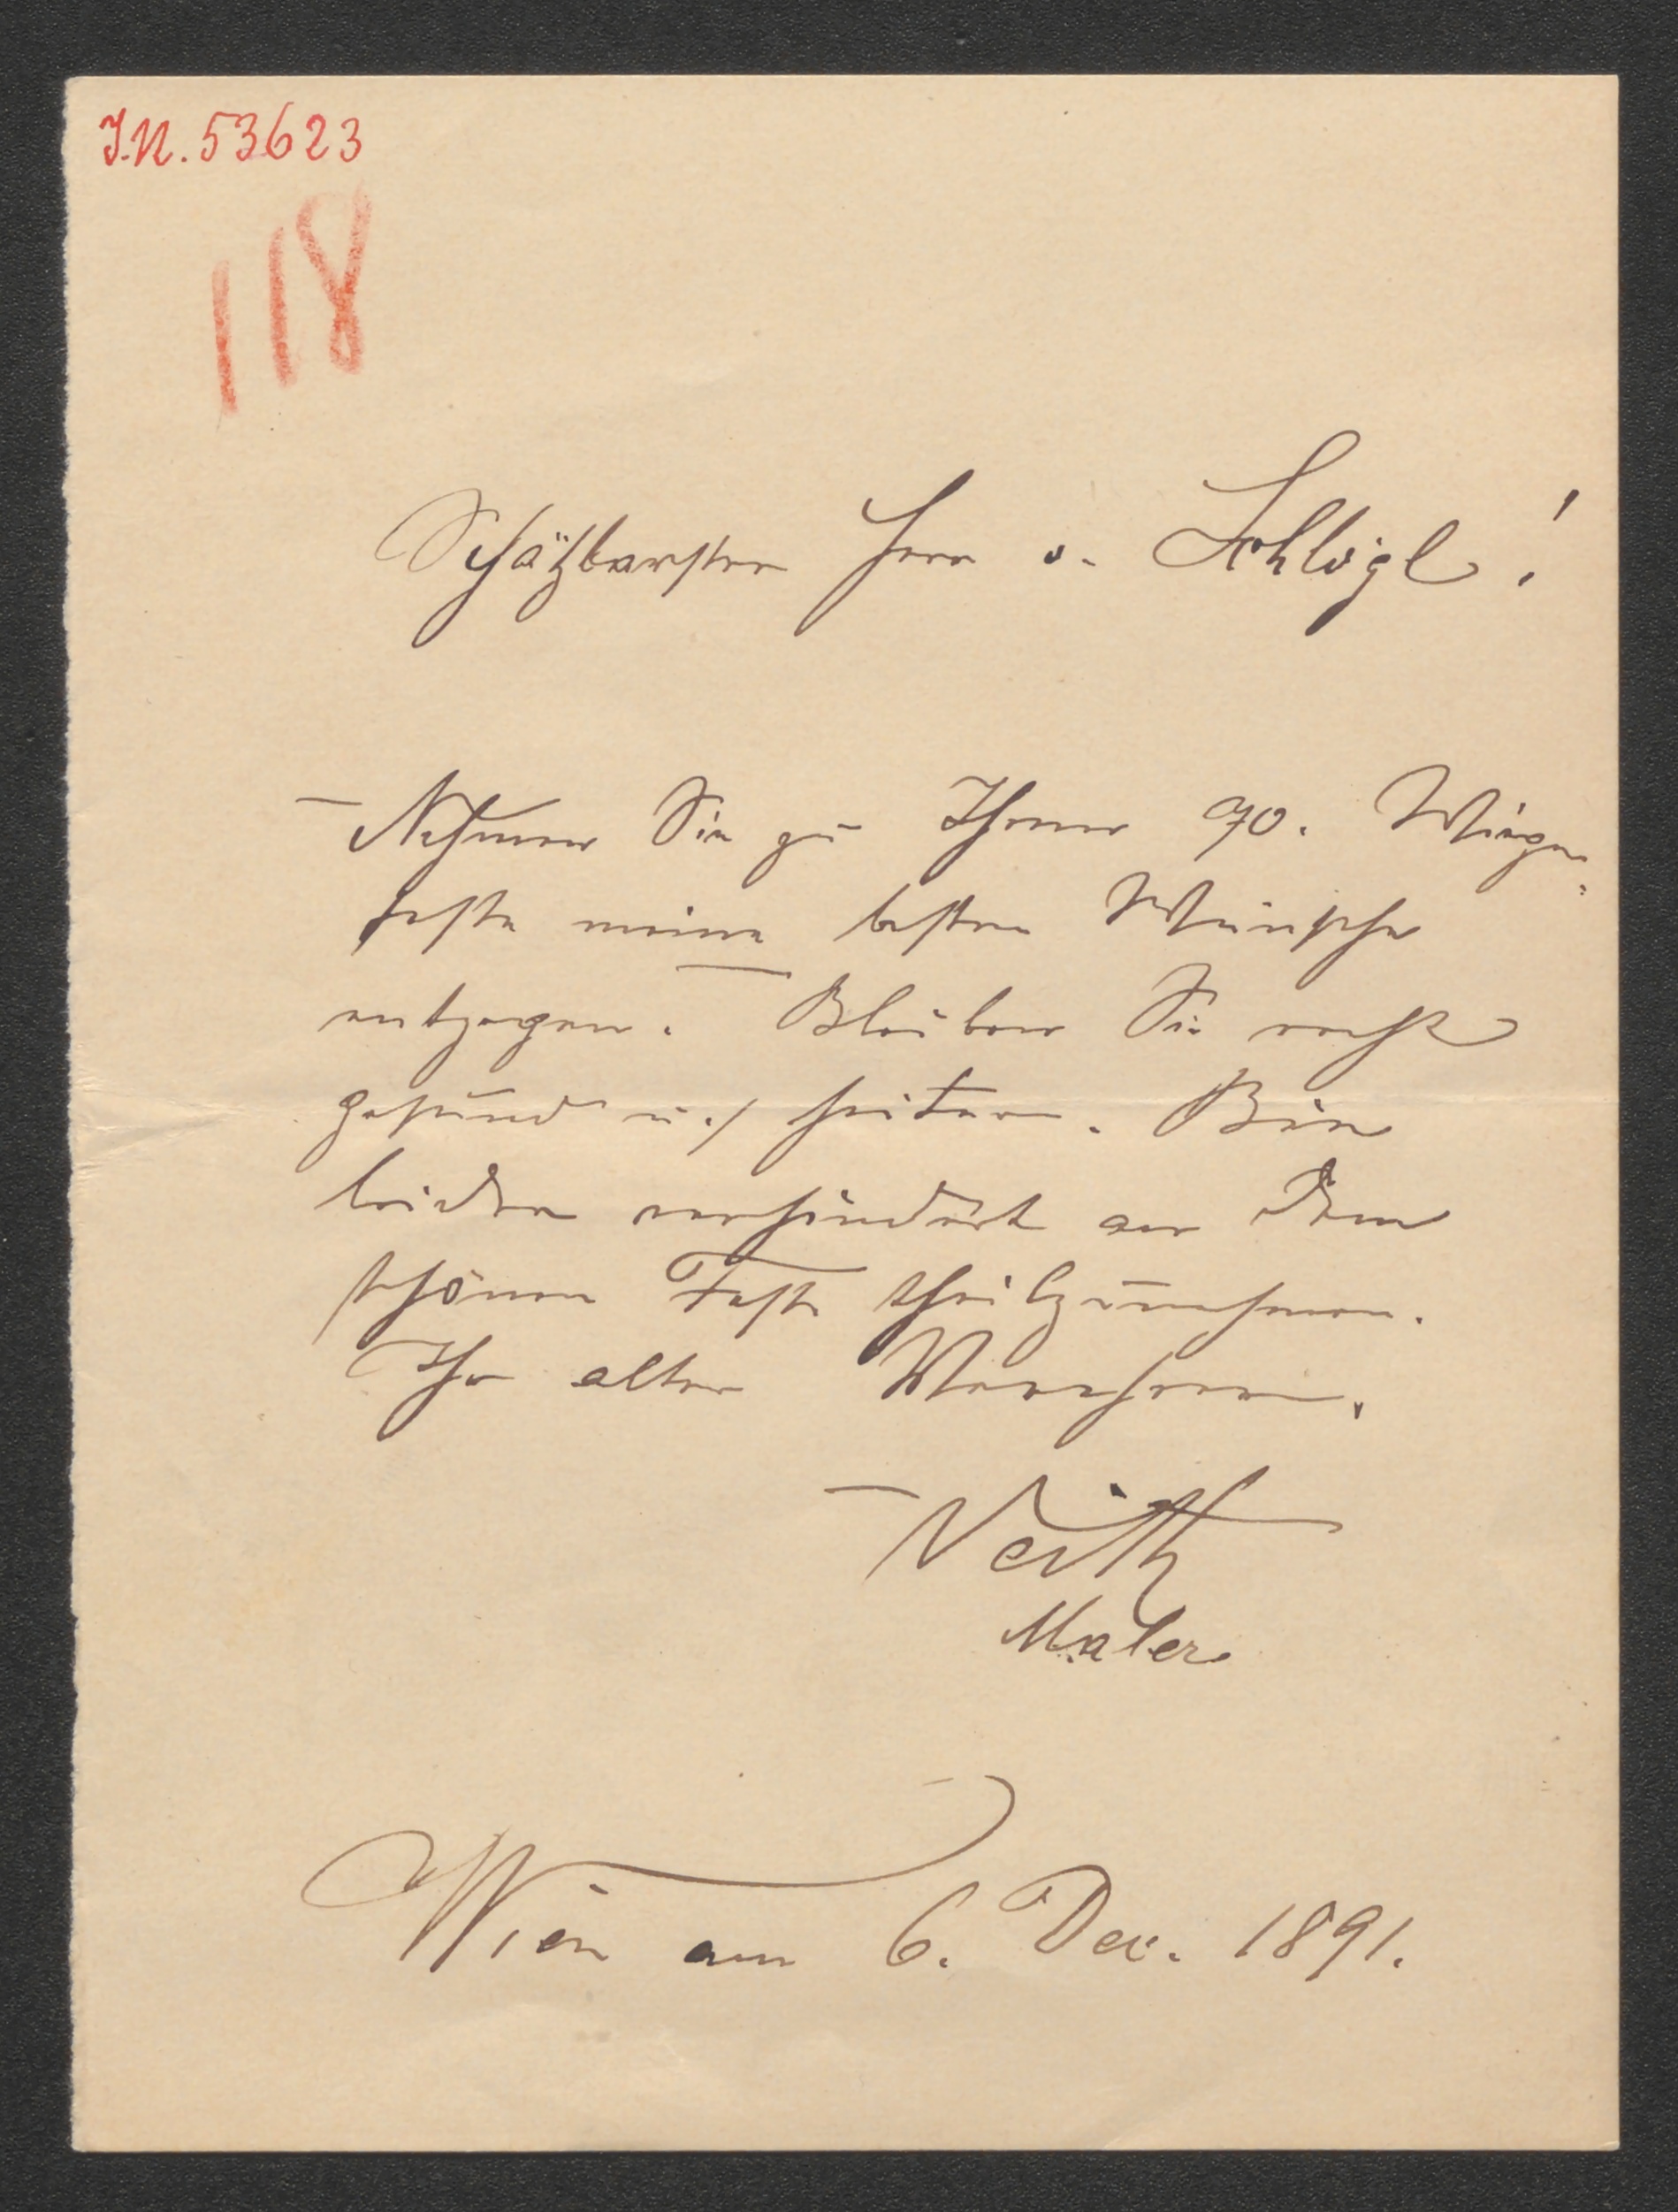 I.N. 53623
118
Schätzbarster Herr v. Schlögl!
Nehmen Sie zu Ihrem 70. Wiegen-
feste meine besten Wünsche
entgegen. Bleiben Sie recht
gesund u. heiter. Bin
leider verhindert an dem
schönen Feste theilzunehmen.
Ihr alter Verehrer.
Veith
Maler
Wien am 6. Dec. 1891.